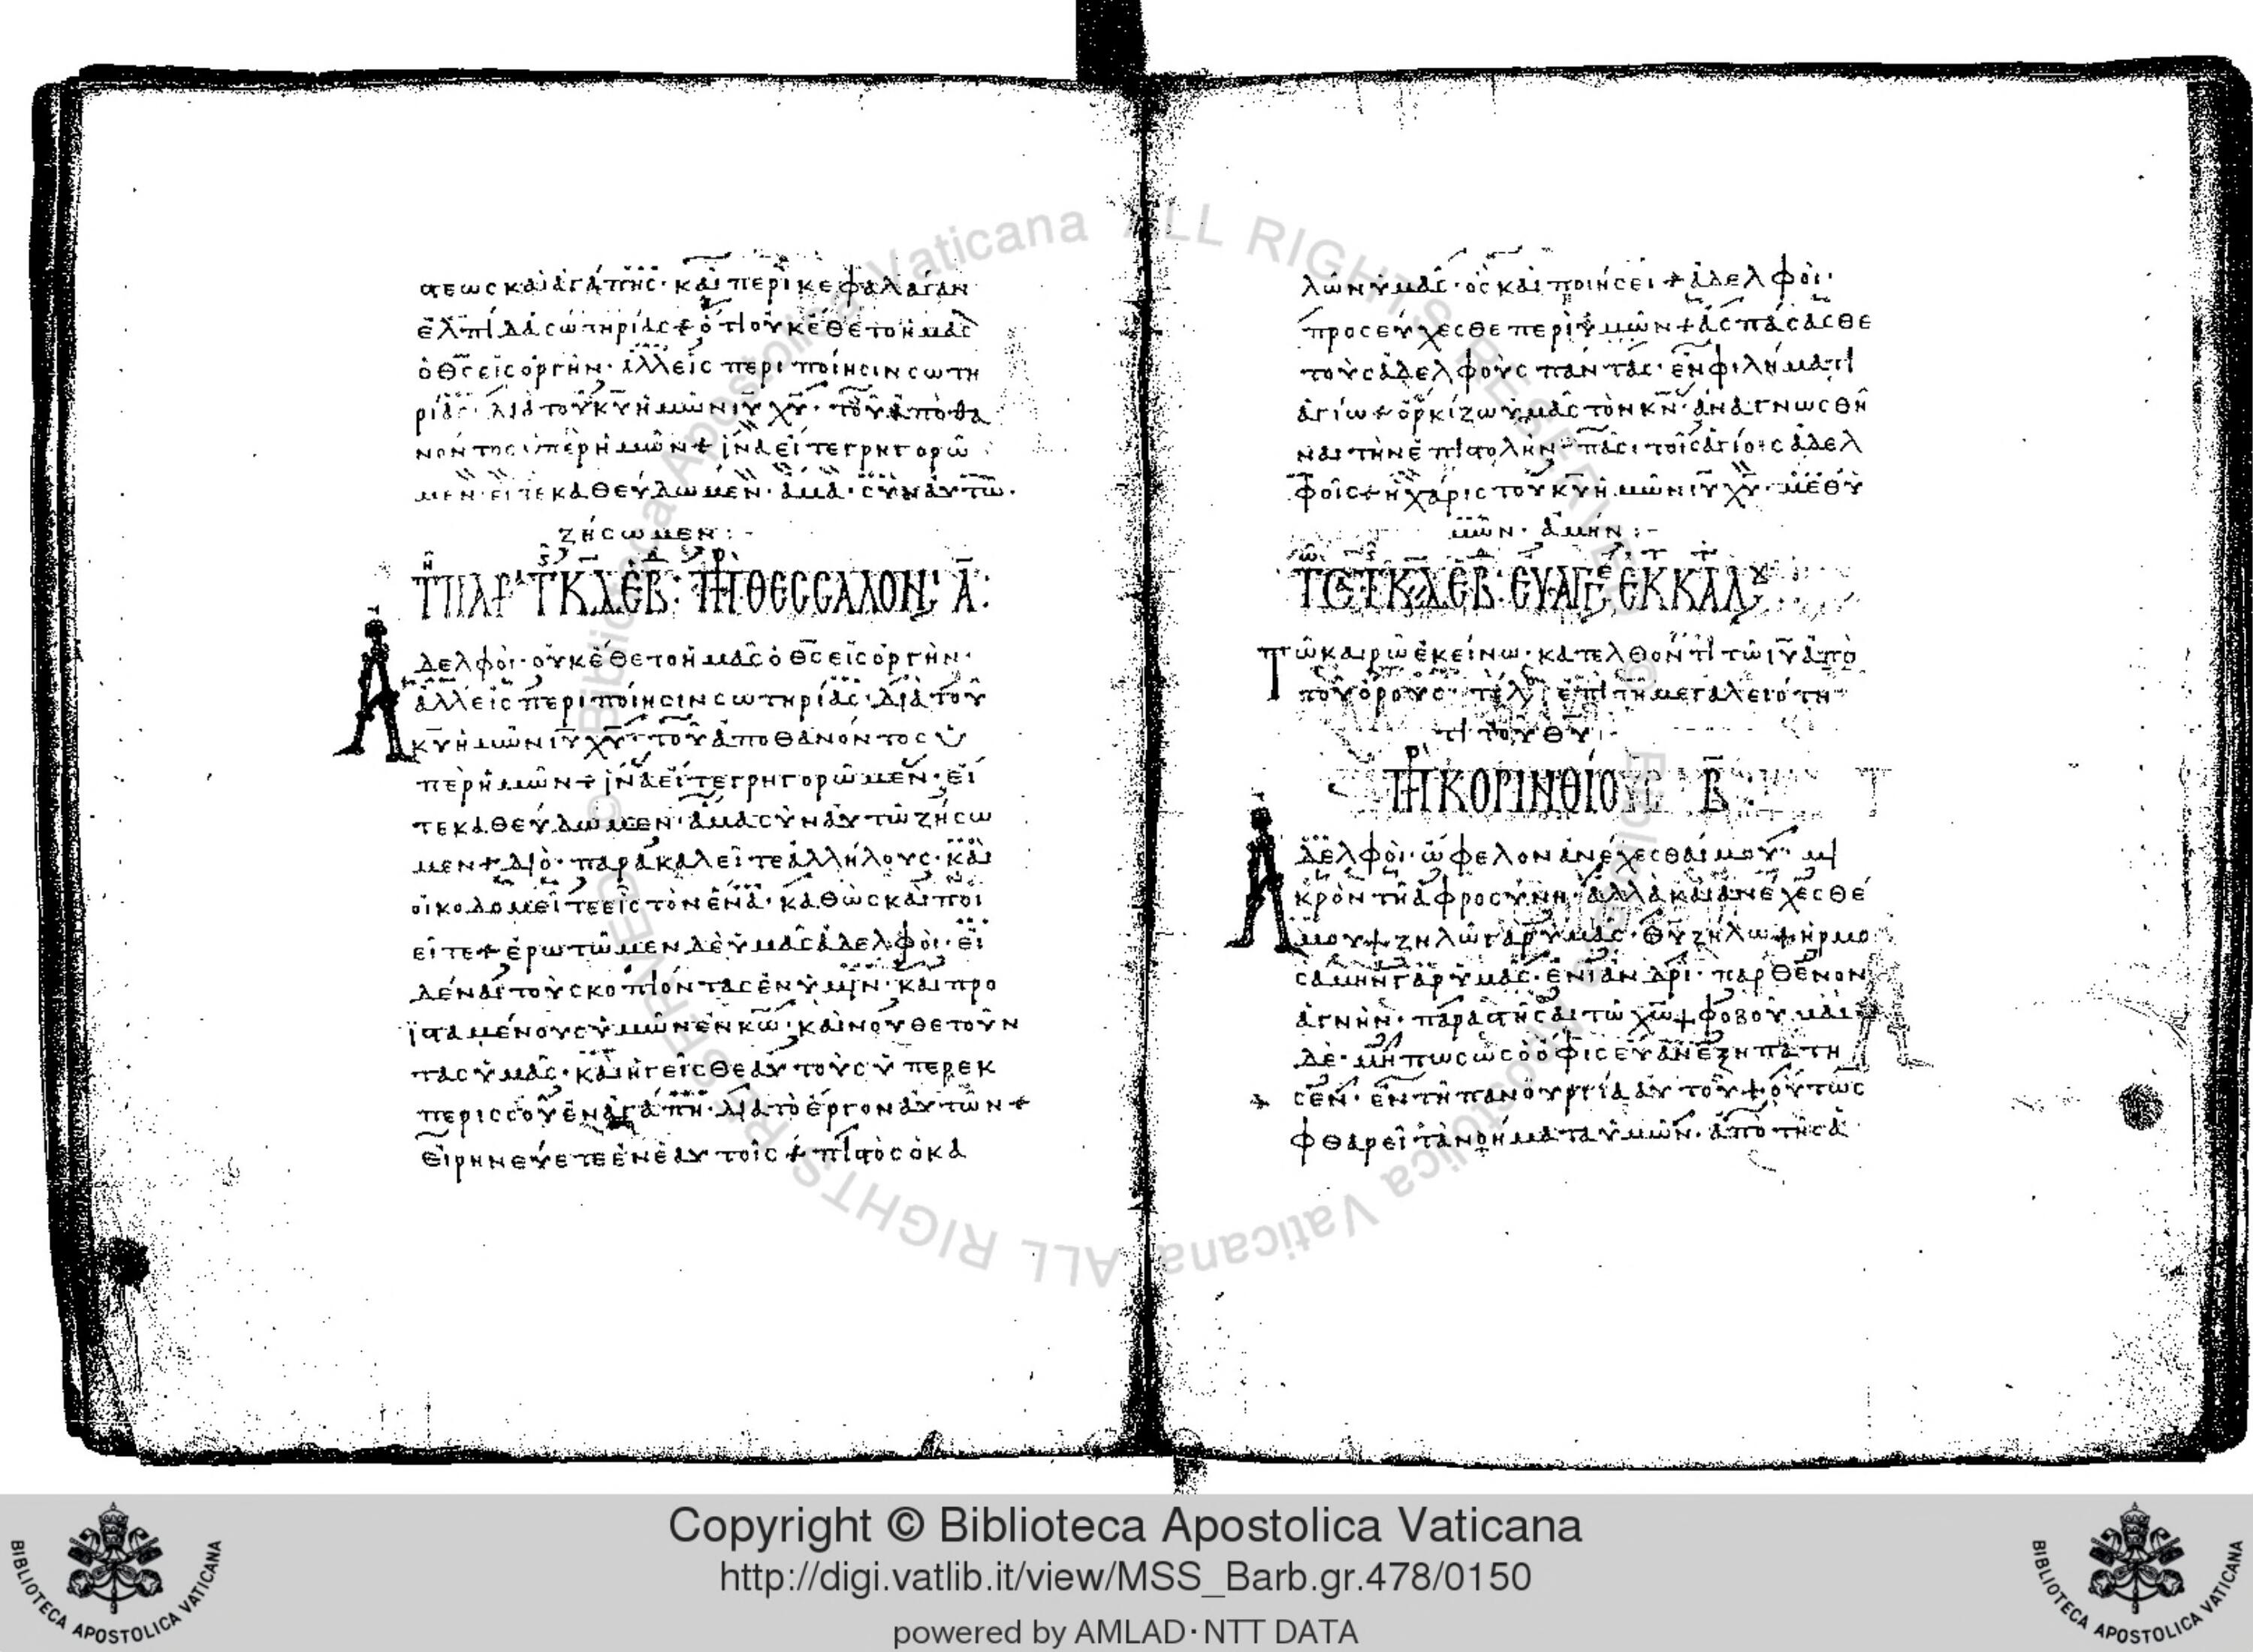 στεως και αγάπης· και περικεφαλαίαν
ἐλπίδα σωτηρίας + ὅτι οὐκ ἔθετο ἡμᾶς
ὁ θς εἰς ὀργήν· ἀλλ εἰς περιποίησιν σωτη
ρίας· διὰ τοῦ κυ ἡμῶν ιυ χυ· τοῦ ἀποθα
νόντος ὑπὲρ ἡμῶν + ἵνα εἴτε γρηγορῶ
μεν· εἴτε καθεύδωμεν· ἅμα· σὺν αὐτῶ·
ζήσωμεν :-
ΘΕΣΣΑΛΟΝ Α:
Αδελφοὶ· οὐκ ἔθετο ἡμᾶς ὁ θς εἰς ὀργήν·
ἀλλ εἰς περιποίησιν σωτηρίας· διὰ τοῦ
κυ ἡμῶν ιυ χυ· τοῦ ἀποθανόντος ὑ
πὲρ ἡμῶν + ἵνα εἴτε γρηγορῶμεν· εἴ
τε καθεύδωμεν· ἅμα σὺν αὐτῶ ζήσω
μεν + διὸ· παρακαλεῖτε ἀλλήλους· και
οἰκοδομεῖτε εἷς τὸν ἕνα· καθὼς και ποι
εῖτε + ἐρωτῶμεν δὲ ὑμᾶς ἀδελφοὶ· εἰ
δέναι τοὺς κοπιόντας ἐν ὑμῖν· και προ
ϊσταμένους ὑμῶν ἐν κω· και νουθετοῦν
τας ὑμᾶς· και ἡγεῖσθε αὐτοὺς ὑπερεκ
περισσοῦ ἐν ἀγάπη· διὰ τὸ ἔργον αὐτῶν +
Εἰρηνεύετε ἐν ἑαυτοῖς + πιστὸς ὁ κα
λῶν ὑμᾶς· ὃς και ποιήσει + ἀδελφοὶ·
προσεύχεσθε περὶ ὑμῶν + ἀσπάσασθε
τοὺς ἀδελφοὺς πάντας· ἐν φιλήματι
ἁγίω + ὁρκίζω ὑμᾶς τὸν κν· ἀναγνωσθῆ
ναι τὴν ἐπιστολὴν· πᾶσι τοῖς ἁγίοις ἀδελ
φοῖς + ἡ χάρις τοῦ κυ ἡμῶν ιυ χυ· μεθ ὑ
μῶν· ἀμήν :-
Τῶ καιρῶ ἐκείνω· κατελθόντι τῶ ιυ ἀπὸ
τοῦ ὄρους· τέλ ἐπὶ τῆ μεγαλειότη
τι τοῦ θυ :-
ΚΟΡΙΝΘΙΟΥΣ Β
Αδελφοὶ· ὤφελον ἀνέχεσθαί μου· μι
κρὸν τῆ ἀφροσύνη· ἀλλὰ και ἀνέχεσθέ
μου + ζηλῶ γὰρ ὑμᾶς· θυ ζήλω + ἡρμο
σάμην γὰρ ὑμᾶς· ἑνὶ ἀνδρὶ· παρθένον
ἁγνὴν· παραστῆσαι τῶ χω + φοβοῦμαι
δὲ· μήπως ὡς ὁ ὄφις εὔαν ἐξηπάτη
σεν· ἐν τῆ πανουργία αὐτοῦ + οὕτως
φθαρεῖ τὰ νοήματα ὑμῶν· ἀπὸ τῆς ἁ
Copyright © Biblioteca Apostolica Vaticana
http://digi.vatlib.it/view/MSS_Barb.gr.478/0150
powered by AMLAD·NTT DATA
BIBLIOTECA APOSTOLICA VATICANA
BIBLIOTECA APOSTOLICA VATICANA